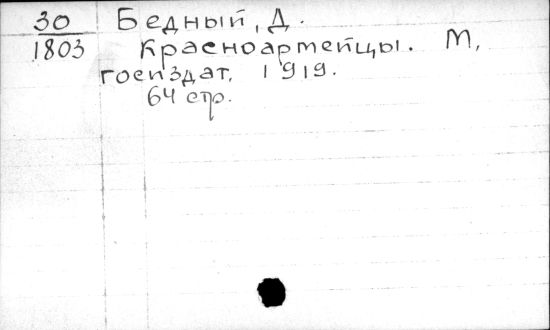 30 Бедный, Д.
1803 Красноармейцы. М,
госиздат, 1919.
64 стр.